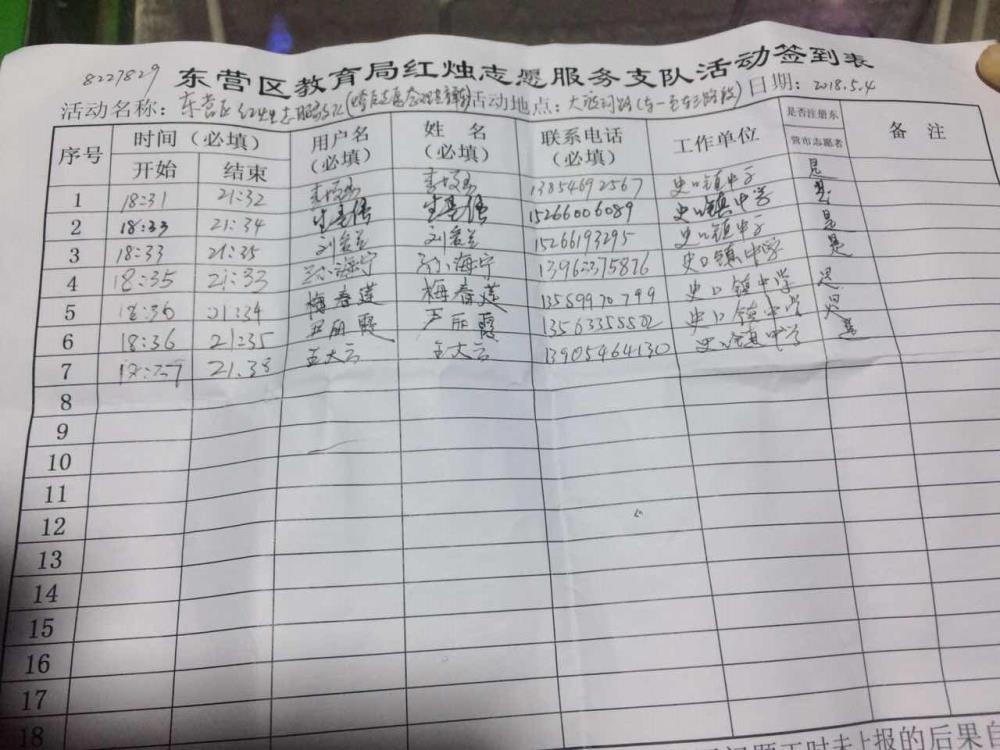 8227829 东营区教育局红烛志愿服务支队活动签到表
活动名称：东营区红烛志愿 活动地点： 日期：2018.5.4
序号 时间（必填） 用户名（必填） 姓名（必填） 联系电话（必填） 工作单位 是否注册东营市志愿者 备注
开始 结束
1 18:31 21:32 13854692567 史口镇中学 是
2 18:33 21:34 15266006089 史口镇中学 是
3 18:33 21:35 刘爱兰 刘爱兰 15266193295 史口镇中学 是
4 18:35 21:33 孙海宁 孙海宁 史口镇中学 是
5 18:36 21:34 梅春莲 梅春莲 13589970799 史口镇中学 是
6 18:36 21:35 尹丽霞 尹丽霞 13563355502 史口镇中学 是
7 21:38 王大云 王大云 13905464130 史口镇中学 是
8
9
10
11
12
13
14
15
16
17
18
时未上报的后果自